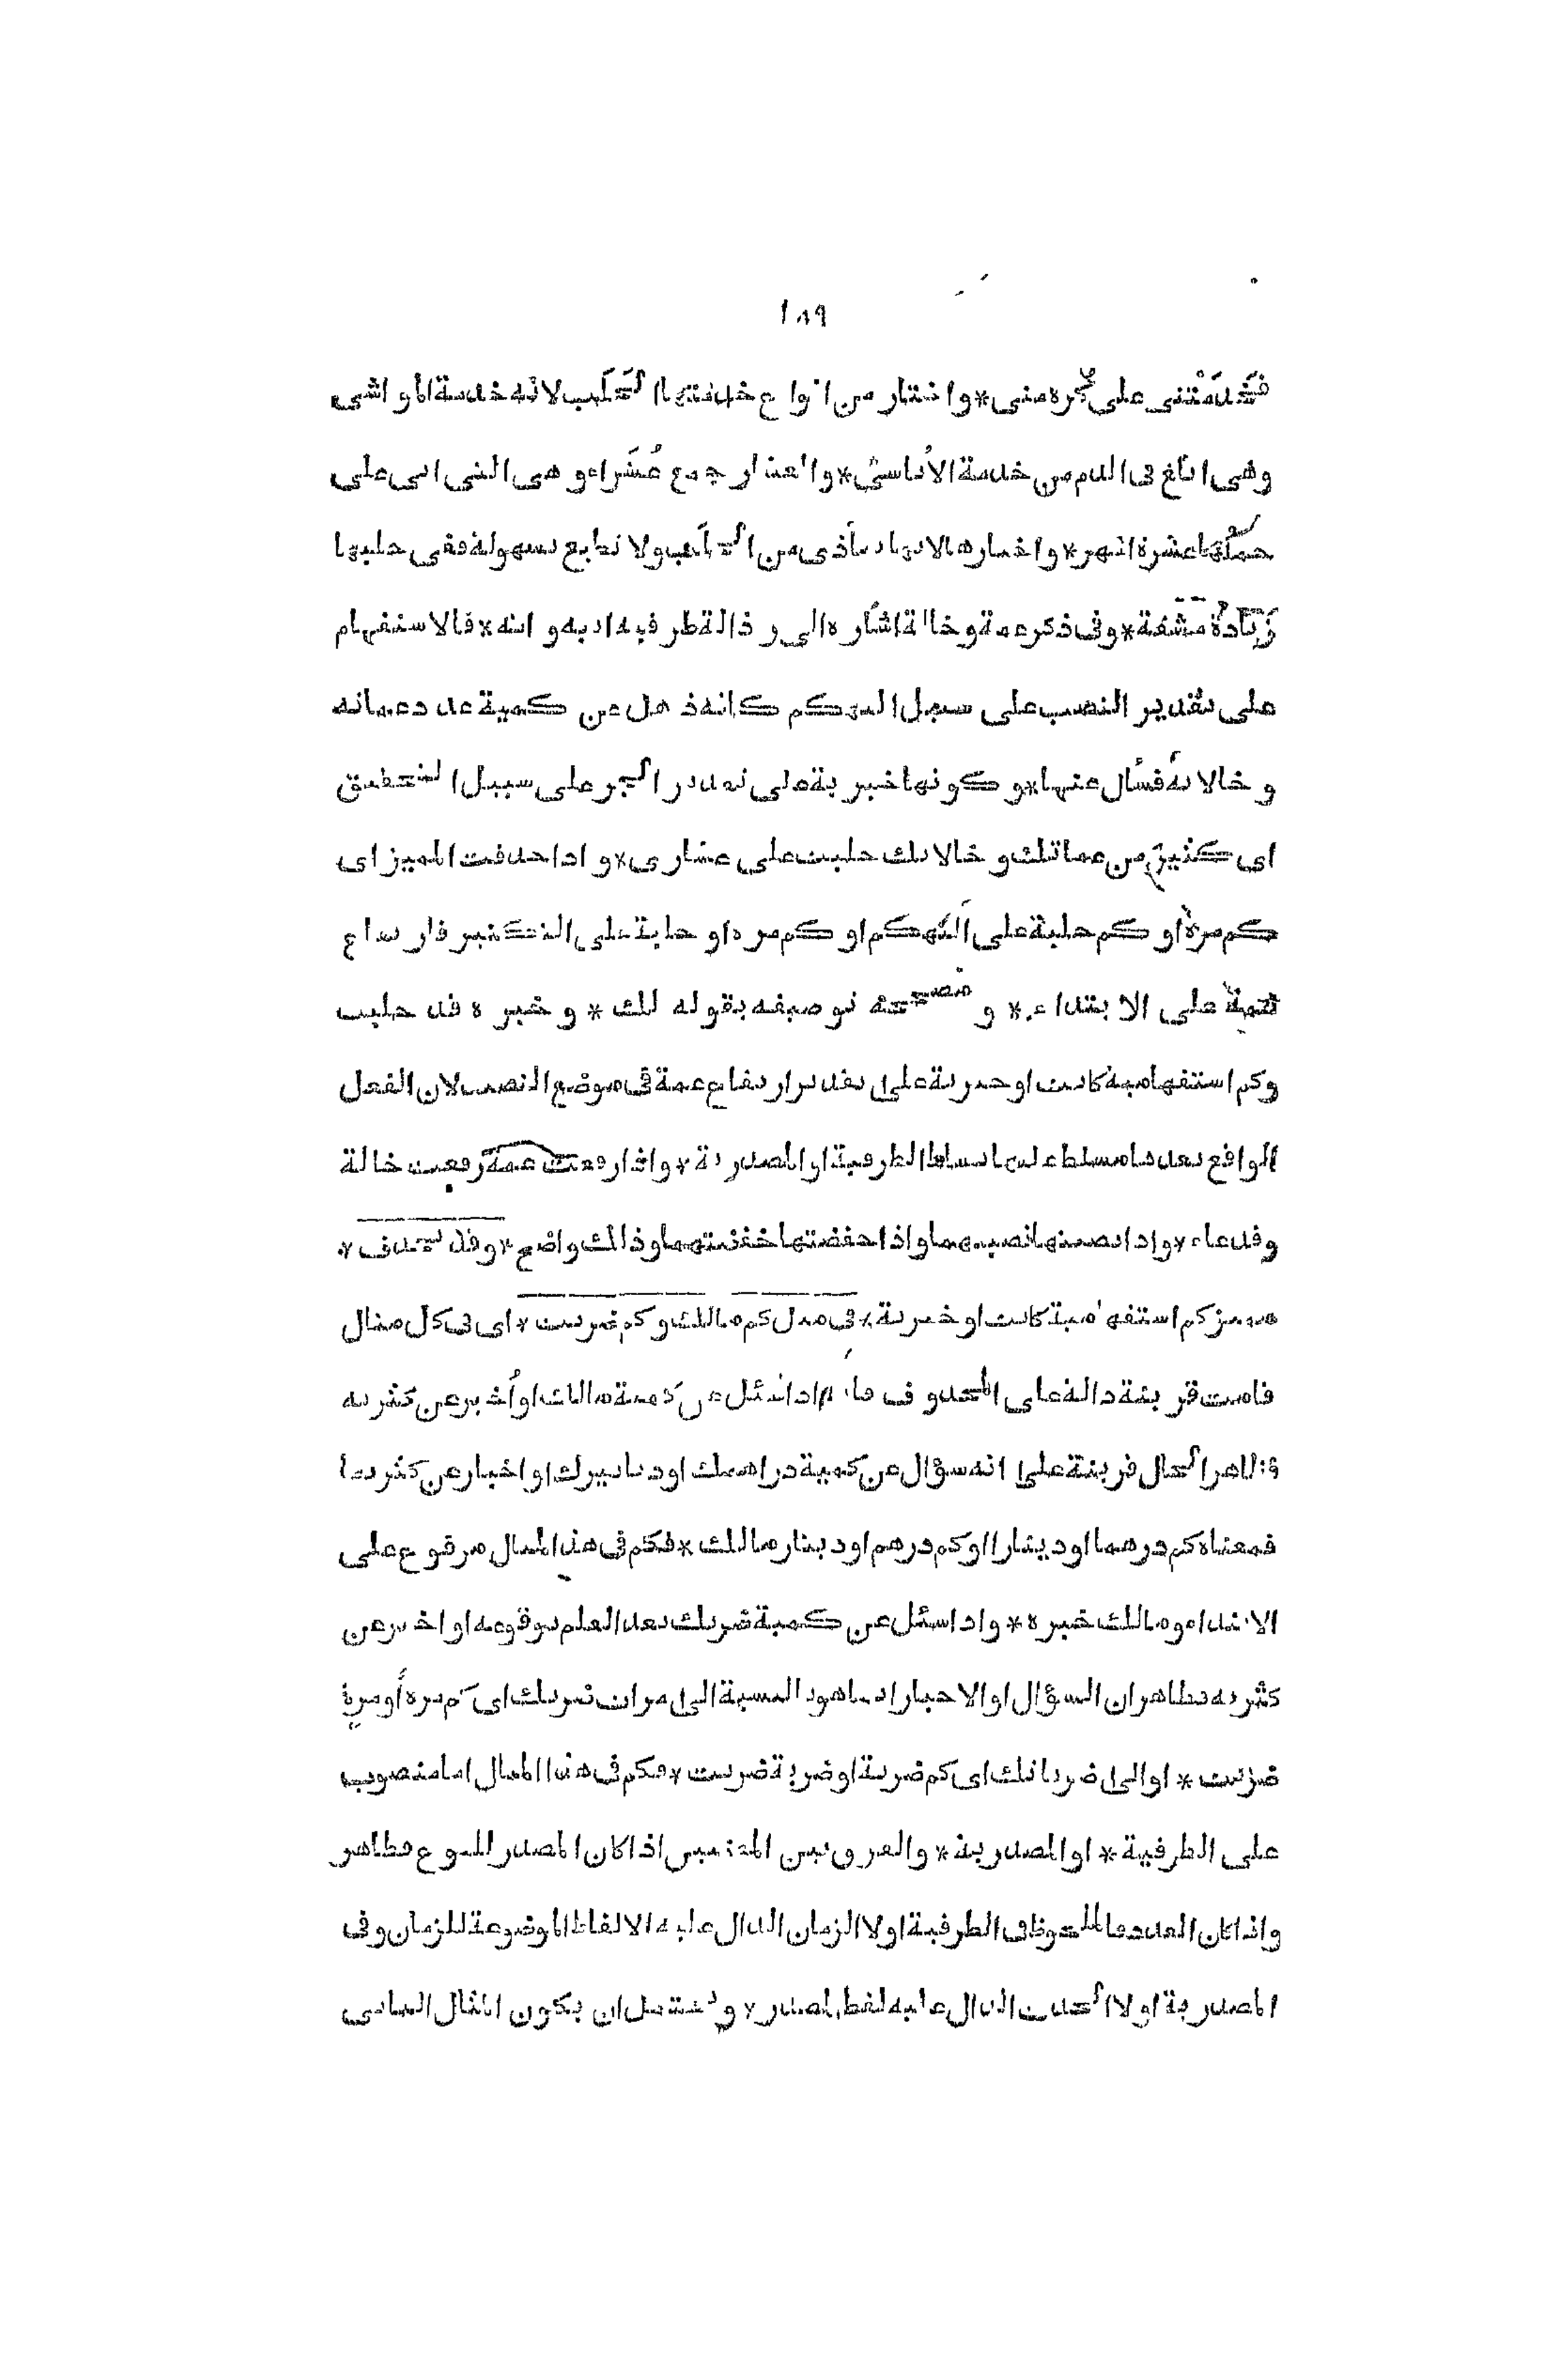 ١٨٩
فَخَدَمَتْنى على كُره منى * واختار من انواع خدمتها الحَلَب لانه خدمة المواشى
وهى ابلغ فى الذم من خدمة الأناسىّ * والعشار جمع عُشَراء وهى التى اتى على
حملها عشرة اشهر * واختارها لانها تتأذى من الحلب ولا تطيع بسهولة ففى حلبها
زيادة مشقة * وفى ذكر عمة وخالة اشارة الى رذالة طرفيه ابيه وامه * فالاستفهام
على تقدير النصب على سبيل التهكم كانه ذهل عن كمية عدد عماته
وخالاته فسأل عنها * وكونها خبرية على تقدير الجر على سبيل التحقيق
اى كثير من عماتك وخالاتك حلبت على عشارى * واذا حذفت المميز اى
كم مرة او كم حلبة على التهكم او كم مرة او حلبة على التكثير فارتفاع
عمة على الابتداء * و مصححه توصيفه بقوله لك * وخبره قد حلبت
وكم استفهامية كانت او خبرية على تقدير ارتفاع عمة فى موضع النصب لان الفعل
الواقع بعدها مسلط عليها تسلط الظرفية او المصدرية * واذا رفعت عمة رفعت خالة
وفدعاء * واذا نصبتها نصبتهما واذا خفضتها خفضتهما وذالك واضح * وقد يحذف *
مميز كم استفهامية كانت او خبرية * فى مثل كم مالك وكم ضربت * اى فى كل مثال
قامت قرينة دالة على المحذوف فانه اذا سئل عن كمية مالك او اُخبر عن كثرته
فظاهر الحال قرينة على انه سؤال عن كمية دراهمك او دنانيرك او اخبار عن كثرتها
فمعناه كم درهما او دينارا او كم درهم او دينار مالك * فكم فى هذا المثال مرفوع على
الابتداء ومالك خبره * واذا سئل عن كمية ضربك بعد العلم بوقوعه او اخبر عن
كثرته فظاهر ان السؤال او الاخبار انما هو بالنسبة الى مرات ضربك اى كم مرة أو مرةٍ
ضربت * او الى ضرباتك اى كم ضربة او ضربة ضربت * فكم فى هذا المثال اما منصوب
على الظرفية * او المصدرية * والفرق بين المعنيين اذا كان المصدر للنوع فظاهر
واذا كان للعدد فالملحوظ فى الظرفية اولا الزمان الدال عليه الالفاظ الموضوعة للزمان وفى
المصدرية اولا الحدث الدال عليه لفظ المصدر * ويحتمل ان يكون المثال الثانى